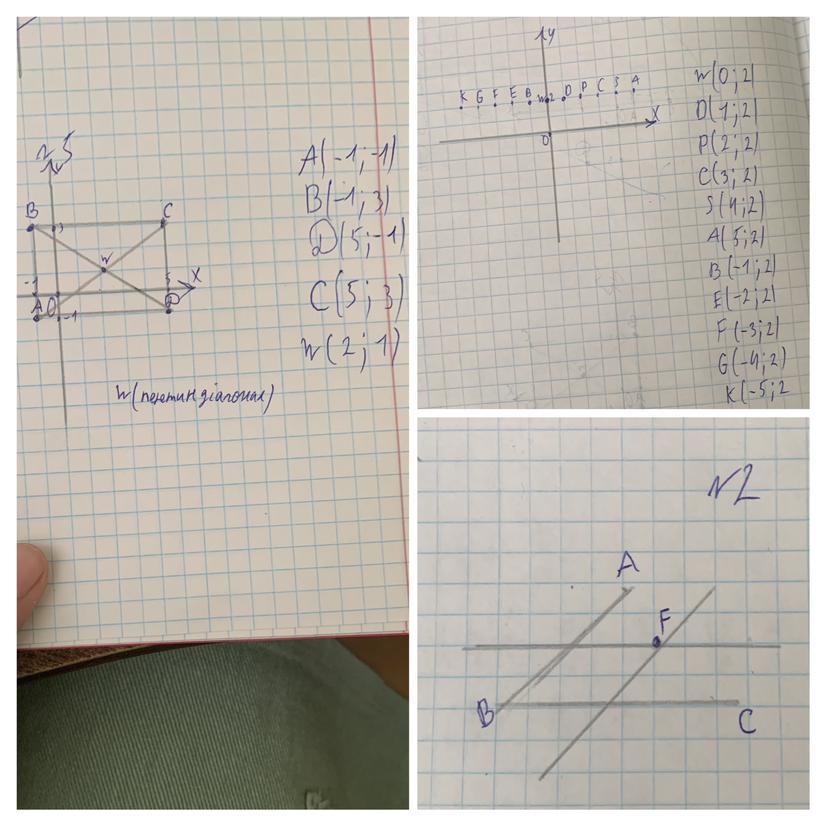 №5
B
C
3
W
-1
5
X
A
O
D
-1
W(перетин діагонал)
A(-1;-1)
B(-1;3)
D(5;-1)
C(5;3)
W(2;1)
y
K G F E B W 2 D P C S A
X
O
W(0;2)
D(1;2)
P(2;2)
C(3;2)
S(4;2)
A(5;2)
B(-1;2)
E(-2;2)
F(-3;2)
G(-4;2)
K(-5;2
№2
A
F
B
C